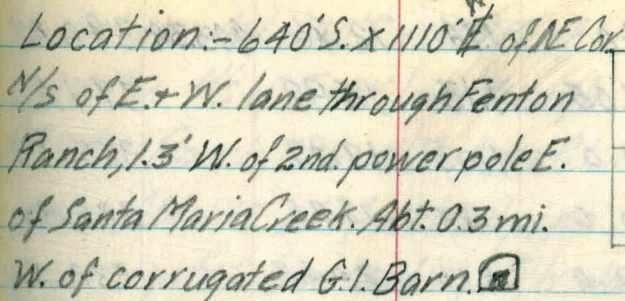 Location:- 640'S. x 1110' of NE Cor.
N/s of E. + W. lane through Fenton
Ranch, 1.3' W. of 2nd. power pole E.
of Santa Maria Creek. Abt. 0.3 mi.
W. of corrugated G.I. Barn.